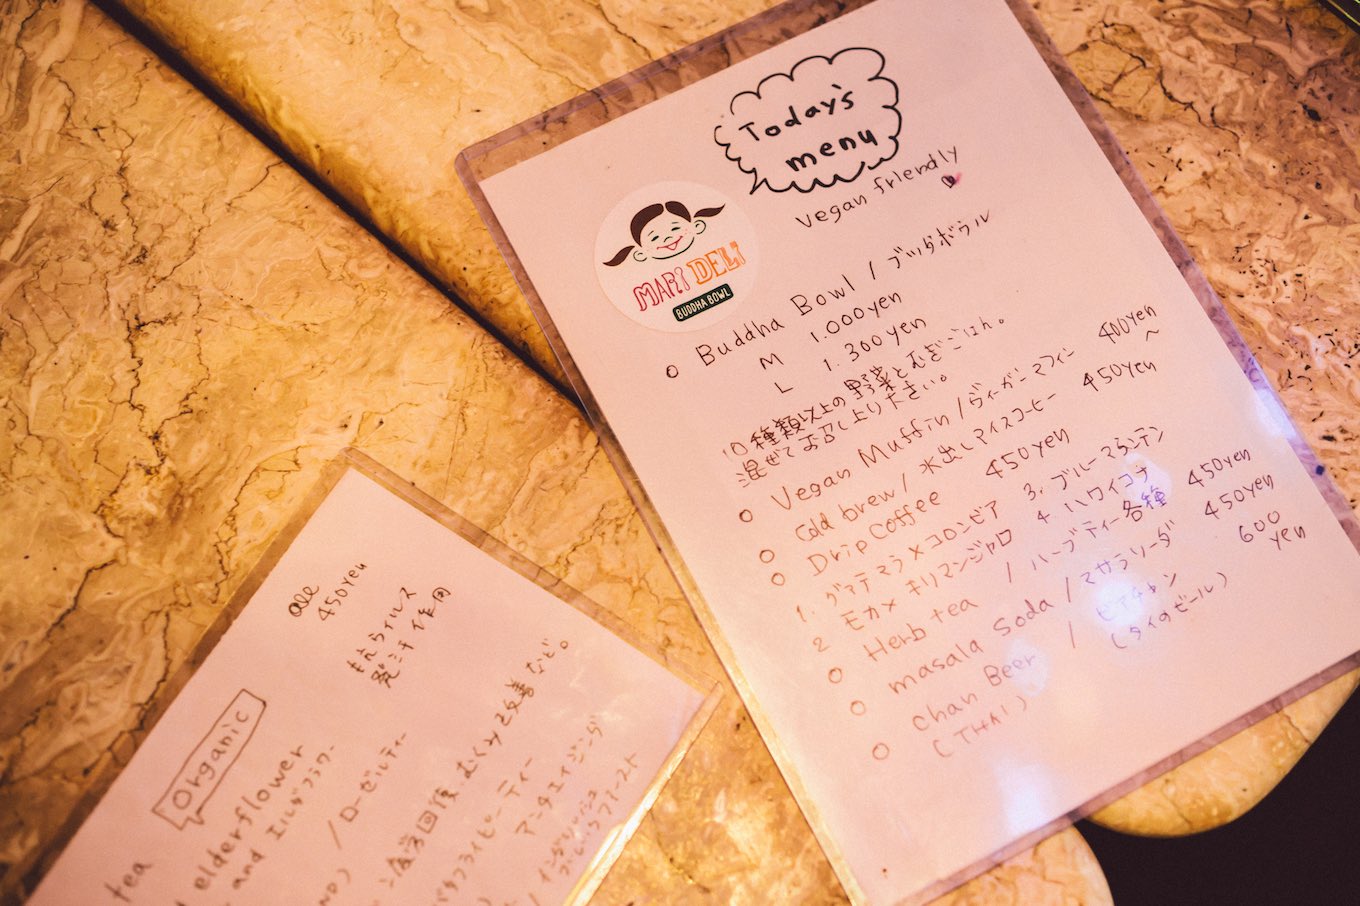 Today's
menu
vegan friendly
MARI DELI
BUDDHA BOWL
Buddha Bowl / ブッダボウル
M 1.000yen
L 1.300yen
10種類以上の野菜とむぎごはん。
混ぜてお召し上り下さい。
Vegan Muffin / ヴィーガンマフィン 400yen
〜
Cold brew / 水出しアイスコーヒー 450yen
Drip Coffee 450yen
1. グァテマラ×コロンビア 3. ブルーマウンテン
2 モカ×キリマンジャロ 4 ハワイコナ
Herb tea / ハーブティー各種 450yen
masala soda / マサラソーダ 450yen
Chan Beer / ビアチャン 600
yen
(THAI) (タイのビール)
all
450yen
抗ウイルス
発汗作用
Organic
elderflower
and エルダフラワー
tea
/ ローゼルティー
疲労回復、むくみ改善など。
バタフライピーティー
アンチエイジング